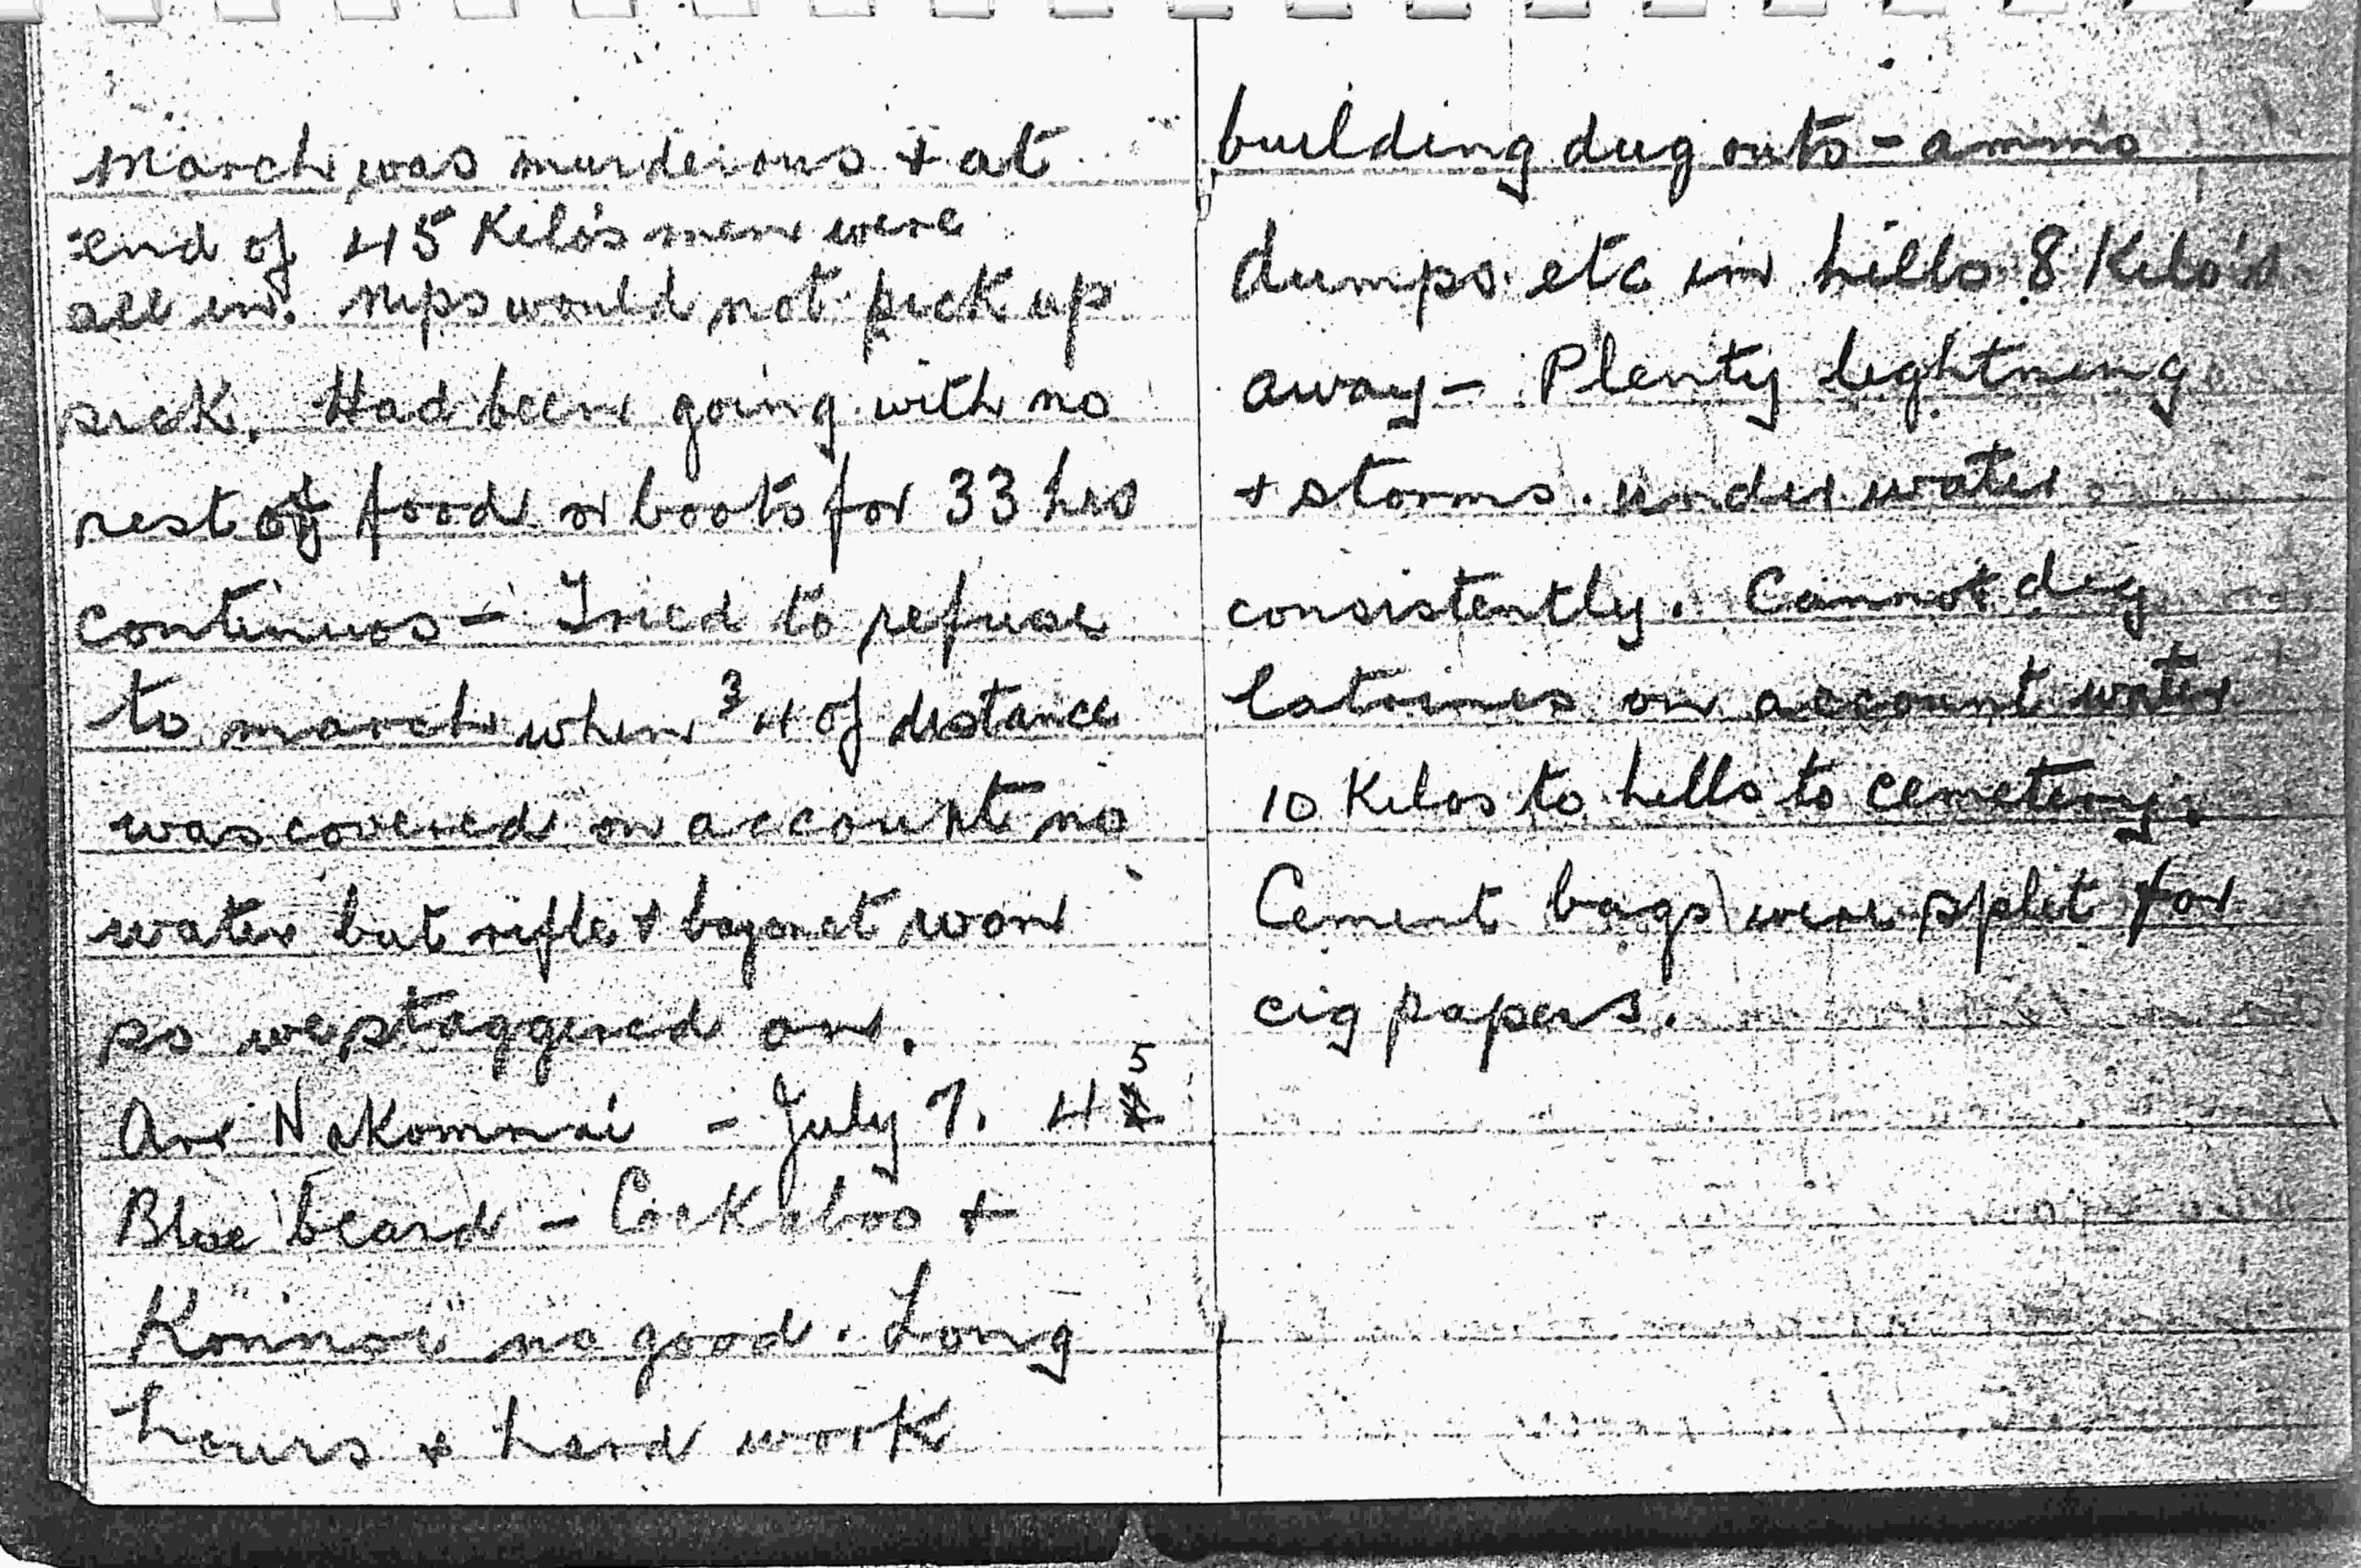 march was murderous + at
end of 45 Kilo's men were
all in. Nips would not pick up
sick. Had been going with no
rest of food or boots for 33 hrs
continuos - Tried to refuse
to march when 3/4 of distance
was covered on account no
water but rifle + bayonet won
so we staggered on.
Arr Nakomnai - July 7. 45
Blue beard - Cockaboo +
Konnoi no good. Long
hours + hard work
building dug outs - ammo
dumps etc in hills 8 Kilo's
away - Plenty lightning
+ storms. under water
consistently. Cannot dig
latrines on account water
10 Kilos to hills to cemetery.
Cement bags were split for
cig papers.